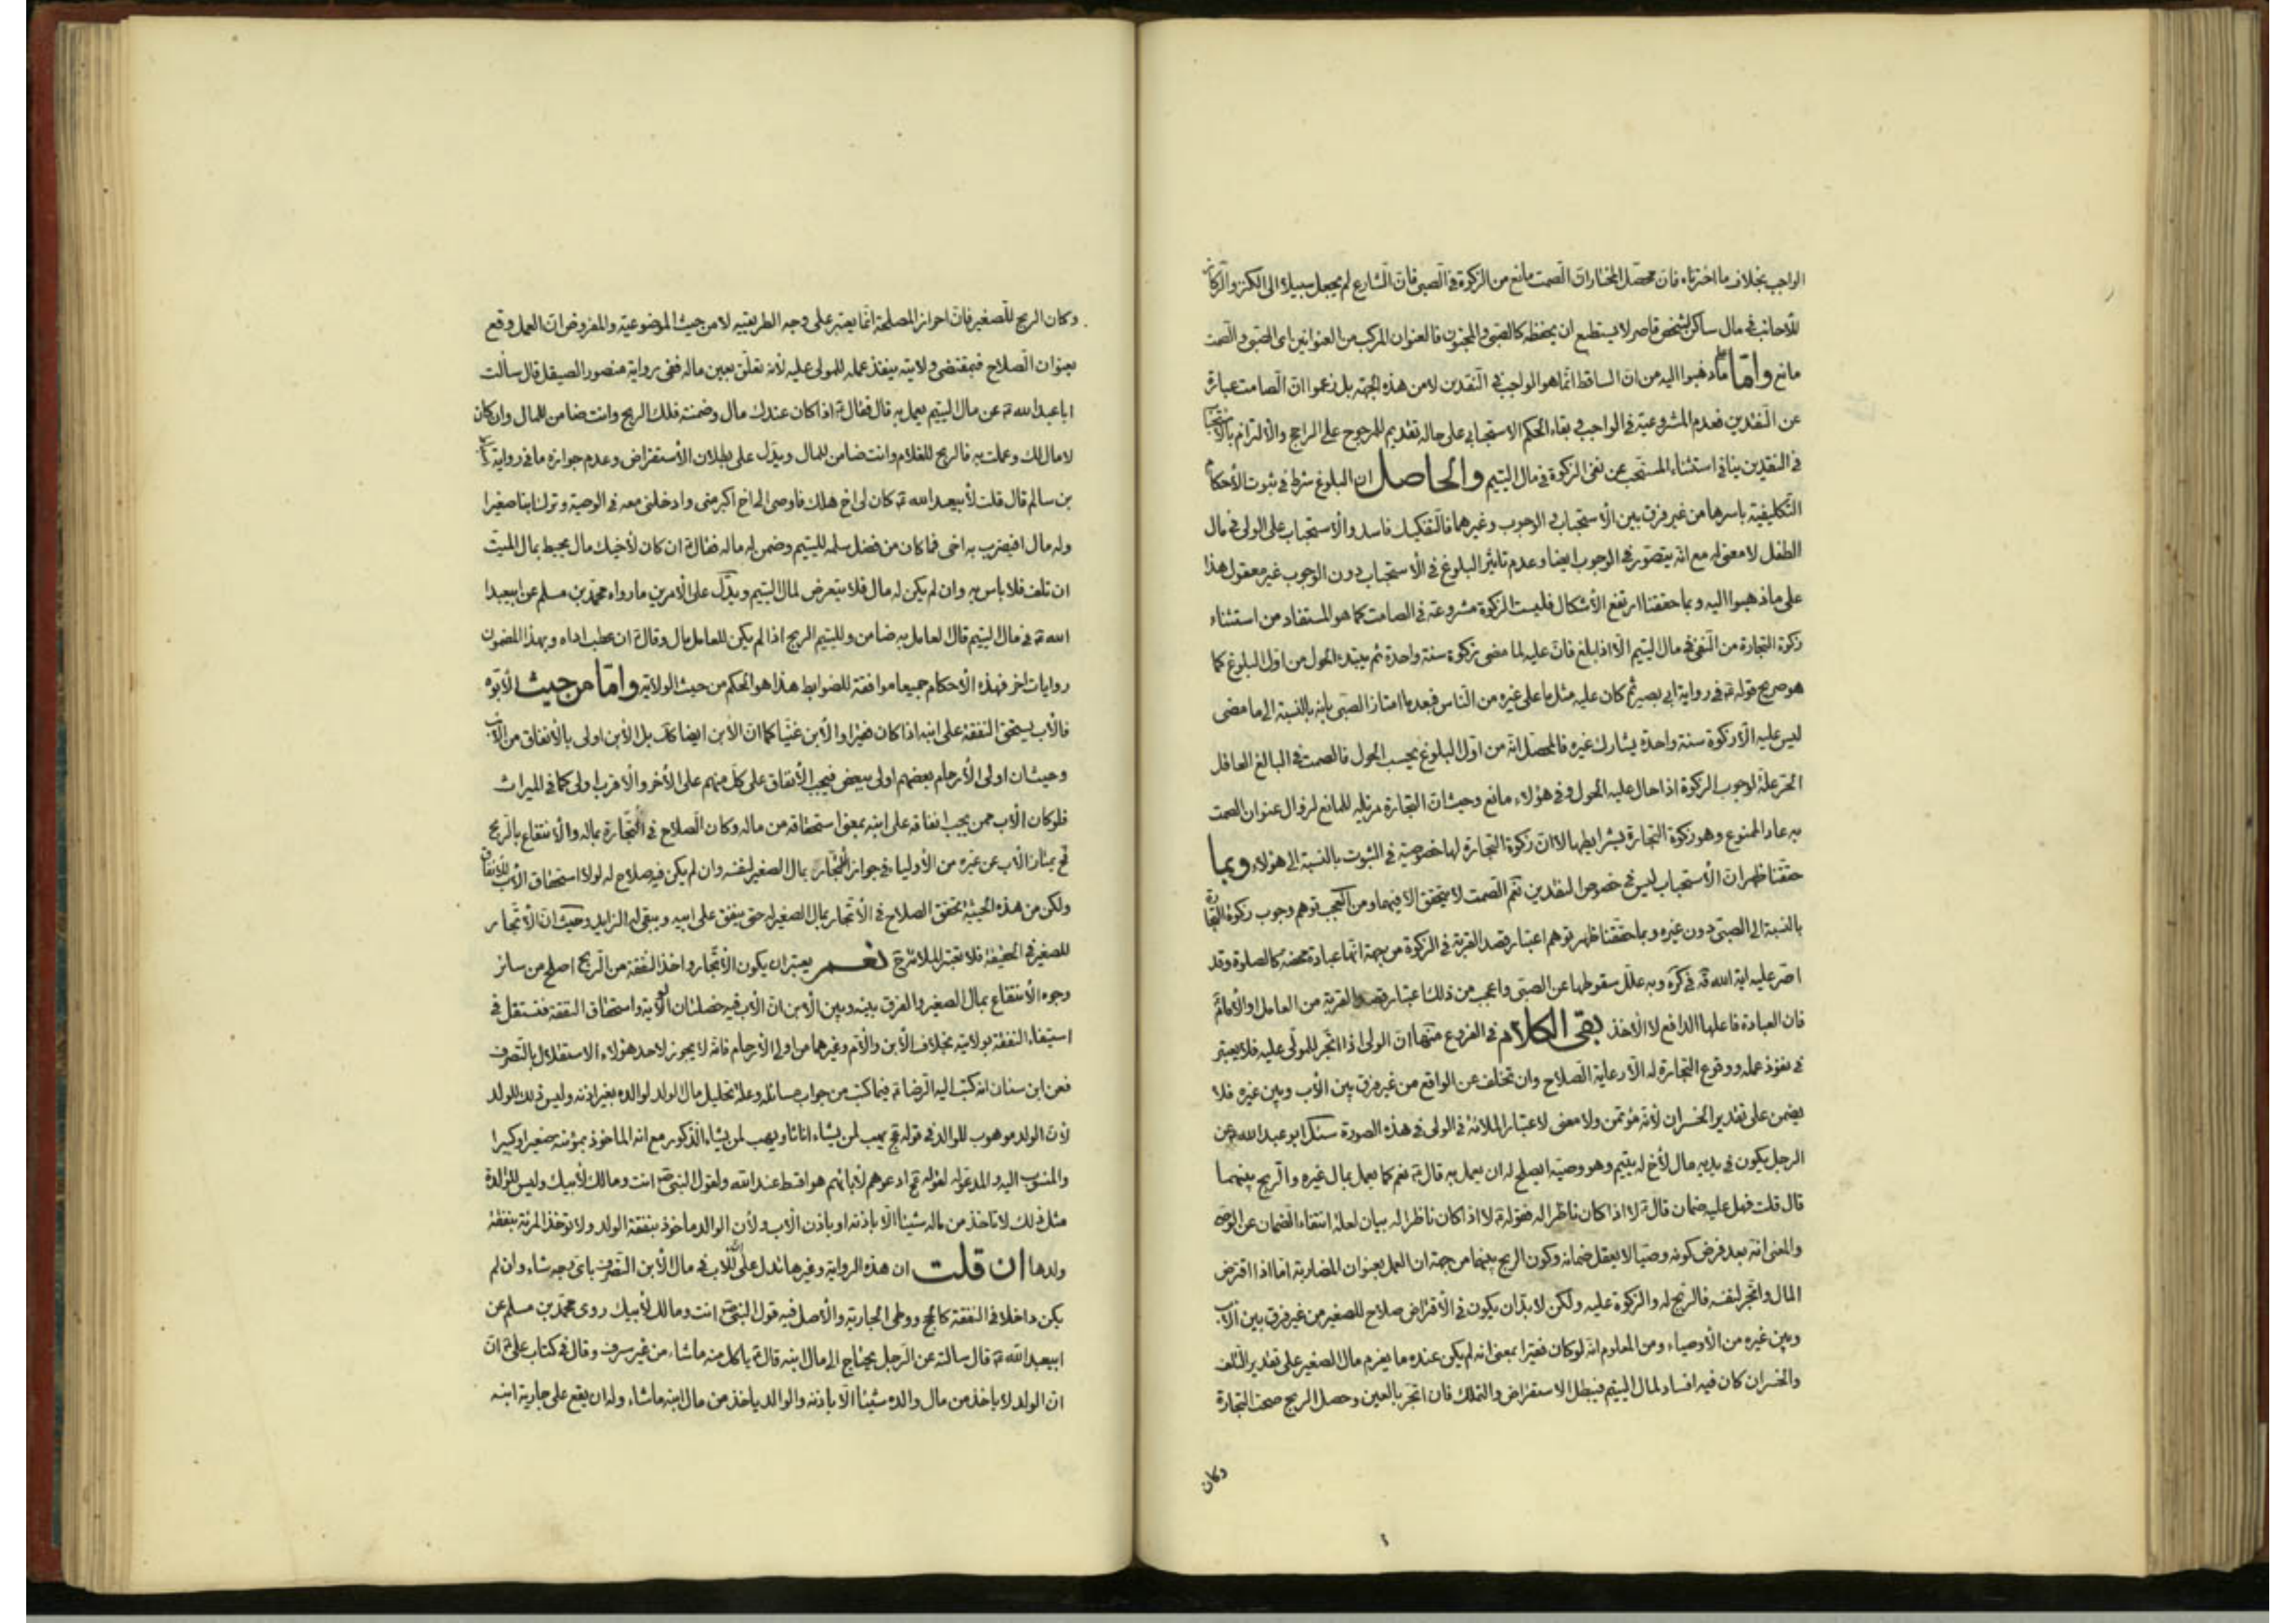 الواجب بخلاف ما اخترناه فان محصّل المختار ان الصمت مانع من الزكوة في الصبي فان الشارع لم يجعل سبيلا الى الكنز والركاز
للاجانب في مال ساكن لشخص قاصر لا يستطيع ان يحفظه كالصبي والمجنون فالعنوان المركب من العنوانين اى الصبى والصمت
مانع واما ما ذهبوا اليه من ان الساقط انما هو الواجب في النقدين لا من هذه الجهة بل زعموا ان الصامت عبارة
عن النقدين فعدم المشروعية في الواجب وبقاء الحكم الاستحبابي على حاله تقديم للمرجوح على الراجح والالتزام بالاستحباب
في النقدين ينافي استثناء المستحب عن نفى الزكوة في مال اليتيم والحاصل ان البلوغ شرط في ثبوت الاحكام
التكليفية باسرها من غير فرق بين الاستحباب والوجوب وغيرهما فالتفكيك فاسد والاستحباب على الولى في مال
الطفل لا معنى له مع انه يتصور في الوجوب ايضا وعدم تاثير البلوغ في الاستحباب دون الوجوب غير معقول هذا
على ما ذهبوا اليه وبما حققنا ارتفع الاشكال فليست الزكوة مشروعة في الصامت كما هو المستفاد من استثناء
زكوة التجارة من النفى في مال اليتيم الا اذا بلغ فان عليه لما مضى زكوة سنة واحدة ثم يبتدء الحول من اول البلوغ كما
هو صريح قوله ع في رواية ابي بصير ثم كان عليه مثل ما على غيره من الناس فبعد ما امتاز الصبى بانه بالنسبة الى ما مضى
ليس عليه الا زكوة سنة واحدة يشارك غيره فالمحصل انه من اول البلوغ يحسب الحول فالصمت في البالغ العاقل
الحر علة لوجوب الزكوة اذا حال عليه الحول وفي هؤلاء مانع وحيث ان التجارة مزيلة للمانع لزوال عنوان الصمت
به عاد الممنوع وهو زكوة التجارة بشرايطها لا ان زكوة التجارة لها خصوصية في الثبوت بالنسبة الى هؤلاء وبما
حققنا ظهر ان الاستحباب ليس في خصوص النقدين نعم الصمت لا يتحقق الا فيهما ومن العجب توهم وجوب زكوة التجارة
بالنسبة الى الصبى دون غيره وبما حققنا ظهر توهم اعتبار قصد القربة في الزكوة من جهة انها عبادة محضة كالصلوة وقد
اصر عليه اية الله قه في كره وبه علل سقوطها عن الصبى واعجب من ذلك اعتبار قصد القربة من العامل او الامام
فان العبادة فاعلها الدافع لا الاخذ بقى الكلام في الفروع منها ان الولى اذا اتجر للمولى عليه فلا يعتبر
في نفوذ عمله ووقوع التجارة له الا رعاية الصلاح وان تخلف عن الواقع من غير فرق بين الاب وبين غيره فلا
يضمن على تقدير الخسران لانه مؤتمن ولا معنى لاعتبار الملائة في الولى في هذه الصورة سئل ابو عبد الله ع عن
الرجل يكون في يديه مال لاخ له يتيم وهو وصيه ايصلح له ان يعمل به قال ع نعم كما يعمل بمال غيره والربح بينهما
قال قلت فهل عليه ضمان قال ع لا اذا كان ناظرا له فقوله ع لا اذا كان ناظرا له بيان لعلة انتقاء الضمان عن الوصى
والمعنى انه بعد فرض كونه وصيا لا يعقل ضمانه وكون الربح بينهما من جهة ان العمل بعنوان المضاربة اما اذا اقترض
المال واتجر لنفسه فالربح له والزكوة عليه ولكن لا بد ان يكون في الاقتراض صلاح للصغير من غير فرق بين الاب
وبين غيره من الاوصياء ومن المعلوم انه لو كان فقيرا بمعنى انه لم يكن عنده ما يغرم مال الصغير على تقدير التلف
والخسران كان فيه افساد لمال اليتيم فيبطل الاستقراض والتملك فان اتجر بالعين وحصل الربح صحت التجارة
وكان
وكان الربح للصغير فان احراز المصلحة انما يعتبر على وجه الطريقيه لا من حيث الموضوعية والمفروض ان العمل وقع
بعنوان الصلاح فبمقتضى ولايته ينفذ عمله للمولى عليه لانه تعلق بعين ماله ففى رواية منصور الصيقل قال سالت
ابا عبد الله ع عن مال اليتيم يعمل به قال فقال ع اذا كان عندك مال وضمنته فلك الربح وانت ضامن للمال وان كان
لا مال لك وعملت به فالربح للغلام وانت ضامن للمال ويدل على بطلان الاستقراض وعدم جوازه ما في رواية
بن سالم قال قلت لابيعبد الله ع كان لى اخ هلك فاوصى الى اخ اكبر منى وادخلنى معه في الوصية وترك ابنا صغيرا
وله مال افيضرب به اخى فما كان من فضل سلمه لليتيم وضمن له ماله فقال ع ان كان لاخيك مال يحيط بمال الميت
ان تلف فلا باس به وان لم يكن له مال فلا يتعرض لمال اليتيم ويدل على الامرين ما رواه محمد بن مسلم عن ابيعبد
الله ع في مال اليتيم قال العامل به ضامن ولليتيم الربح اذا لم يكن للعامل مال وقال ع ان عطب اداه وبهذا المضمون
روايات اخر فهذه الاحكام جميعا موافقة للضوابط هذا هو الحكم من حيث الولاية واما من حيث الابوه
فالاب يستحق النفقة على ابنه اذا كان فقيرا والابن غنيا كما ان الابن ايضا كك بل الابن اولى بالانفاق من الاب
وحيث ان اولى الارحام بعضهم اولى ببعض فيجب الانفاق على كل منهم على الاخر والاقرب اولى كما في الميراث
فلو كان الاب ممن يجب انفاقه على ابنه بمعنى استحقاقه من ماله وكان الصلاح في التجارة بماله والانتفاع بالربح
فح يمتاز الاب عن غيره من الاولياء في جواز التجارة بمال الصغير لنفسه وان لم يكن فيه صلاح له لولا استحقاق الاب للانفاق
ولكن من هذه الحيثية تحقق الصلاح في الاتجار بمال الصغير له حتى ينفق على ابيه ويبقى له الزايد وحيث ان الاتجار
للصغير في الحقيقة فلا تعتبر الملائة ح نعم يعتبر ان يكون الاتجار واخذ النفقة من الربح اصلح من سائر
وجوه الانتفاع بمال الصغير والفرق بينه وبين الابن ان الاب فيه خصلتان الولاية واستحقاق النفقة فيستقل في
استيفاء النفقة بولايته بخلاف الابن والام وغيرهما من اولى الارحام فانه لا يجوز لاحد هؤلاء الاستقلال بالتصرف
فعن ابن سنان انه كتب اليه الرضا ع فيما كتب من جواب مسائله وعلة تحليل مال الولد لوالده بغير اذنه وليس ذلك للولد
لان الولد موهوب للوالد في قوله تع يهب لمن يشاء اناثا ويهب لمن يشاء الذكور مع انه الماخوذ بمؤنته صغيرا وكبيرا
والمنسوب اليه والمدعو له لقوله تع ادعوهم لابائهم هو اقسط عند الله ولقول النبى ص انت ومالك لابيك وليس للوالدة
مثل ذلك لا تاخذ من ماله شيئا الا باذنه او باذن الاب ولان الوالد ماخوذ بنفقة الولد ولا تؤخذ المرئة بنفقة
ولدها ان قلت ان هذه الرواية وغيرها تدل على ان للاب في مال الابن التصرف باى وجه شاء وان لم
يكن داخلا في النفقة كالحج ووطى الجارية والاصل فيه قول النبى ص انت ومالك لابيك روى محمد بن مسلم عن
ابيعبد الله ع قال سالته عن الرجل يحتاج الى مال ابنه قال ع ياكل منه ما شاء من غير سرف وقال في كتاب على ع ان
ان الولد لا ياخذ من مال والده شيئا الا باذنه والوالد ياخذ من مال ابنه ما شاء وله ان يقع على جارية ابنه